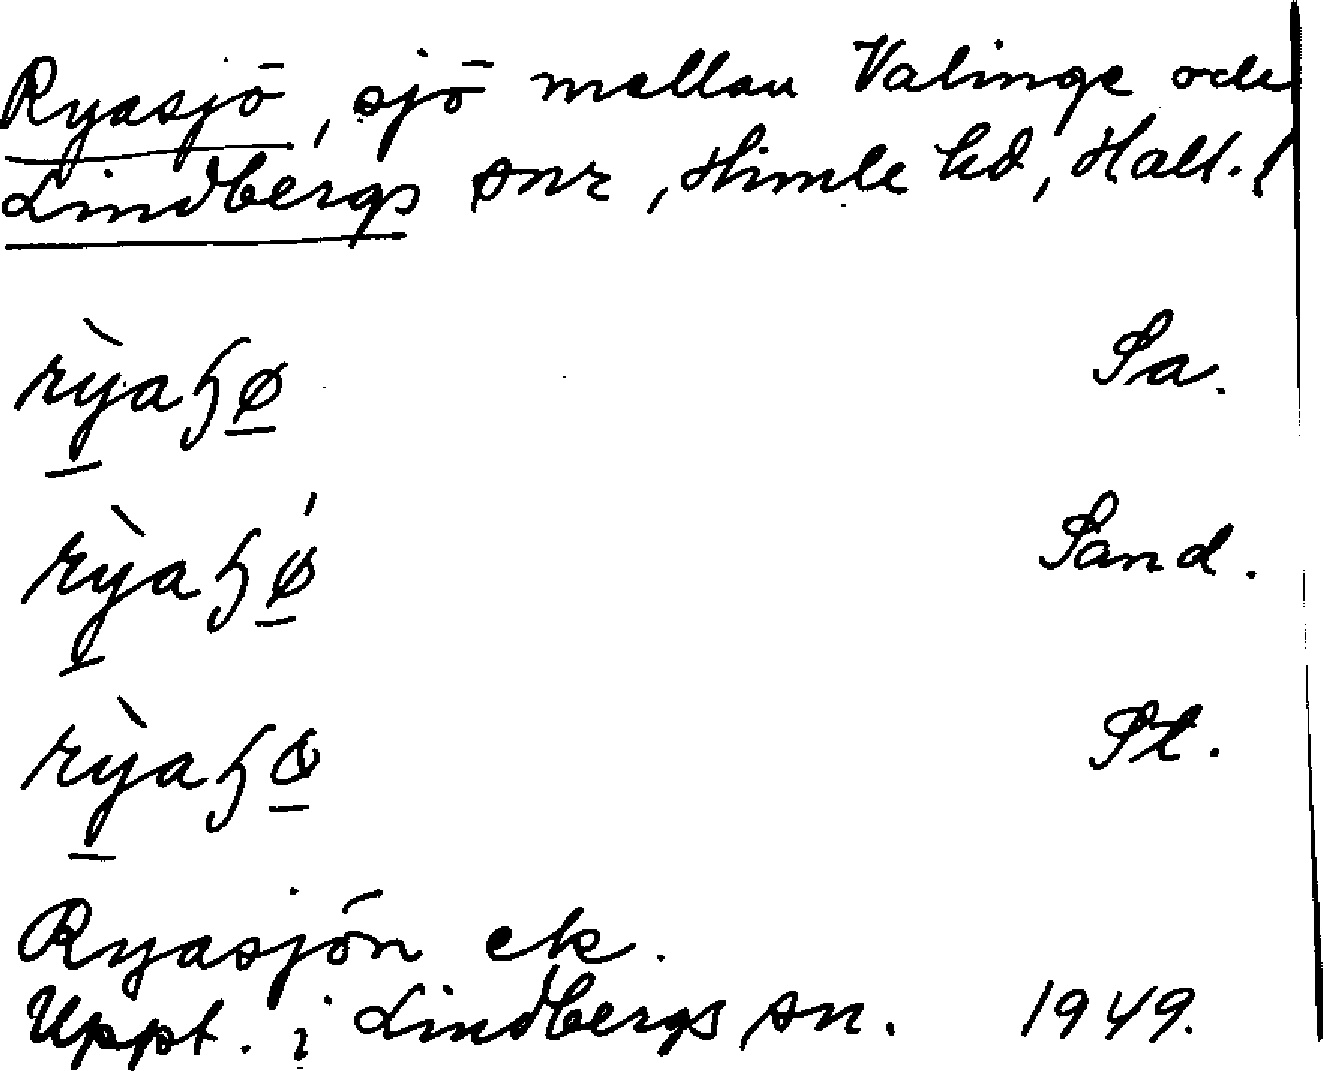 Ryasjö, sjö mellan Valinge och
Lindbergs snr, Himle hd, Hall.
rỳaɧø Sa.
rỳaɧǿ Sand.
rỳaɧɵ St.
Ryasjön ek.
Uppt. i Lindbergs sn. 1949.